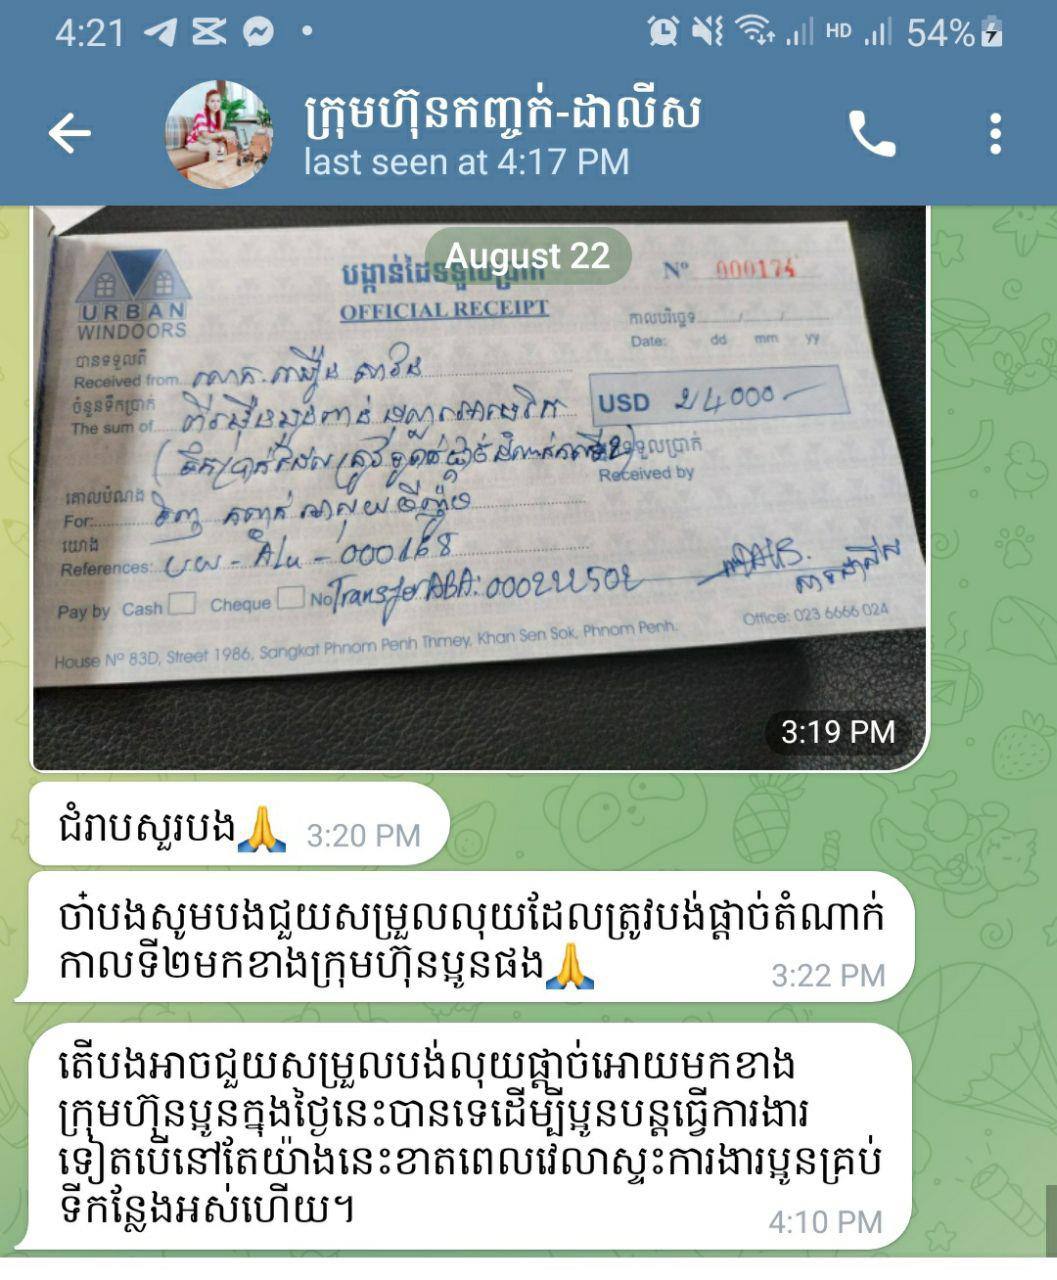 4:21 HD 54%
ក្រុមហ៊ុនកញ្ចក់-ដាលីស
last seen at 4:17 PM
August 22
URBAN
WINDOORS
OFFICIAL RECEIPT
Nº 000174
កាលបរិច្ឆេទ
Date: / / dd mm yy
បានទទួលពី
Received from
ចំនួនទឹកប្រាក់
The sum of
USD 24000
ទទួលប្រាក់
Received by
គោលបំណង
For:
យោង
References: - Alu - 000168
Pay by Cash Cheque No Transfer ABA: 000221502
Office: 023 6666 024
House Nº 83D, Street 1986, Sangkat Phnom Penh Thmey, Khan Sen Sok, Phnom Penh.
3:19 PM
ជំរាបសួរបង🙏 3:20 PM
ចា៎បងសូមបងជួយសម្រួលលុយដែលត្រូវបង់ផ្តាច់តំណាក់
កាលទី២មកខាងក្រុមហ៊ុនប្អូនផង🙏 3:22 PM
តើបងអាចជួយសម្រួលបង់លុយផ្តាច់អោយមកខាង
ក្រុមហ៊ុនប្អូនក្នុងថ្ងៃនេះបានទេដើម្បីប្អូនបន្តធ្វើការងារ
ទៀតបើនៅតែយ៉ាងនេះខាតពេលវេលាស្ទះការងារប្អូនគ្រប់
ទីកន្លែងអស់ហើយ។
4:10 PM